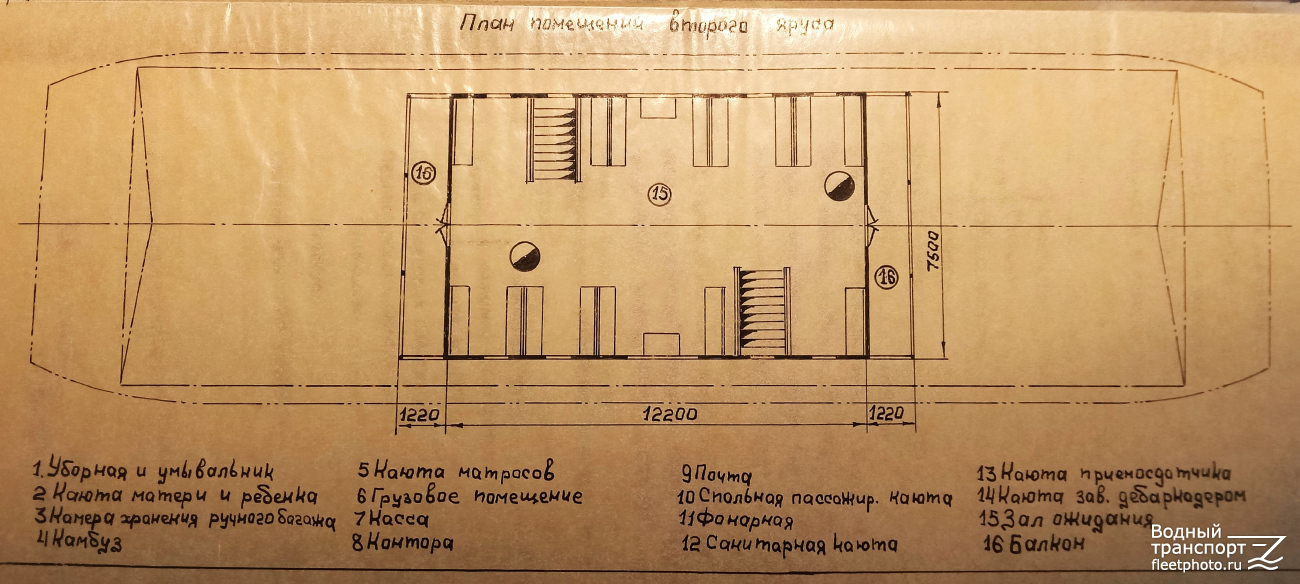 План помещений второго яруса
16
15
16
7600
1220
12200
1220
1. Уборная и умывальник
2 Каюта матери и ребенка
3 Камера хранения ручного багажа
4 Камбуз
5 Каюта матросов
6 Грузовое помещение
7 Касса
8 Контора
9 Почта
10 Спальная пассажир. каюта
11 Фонарная
12 Санитарная каюта
13 Каюта приемосдатчика
14 Каюта зав. дебаркадером
15 Зал ожидания
16 Балкон
Водный
транспорт
fleetphoto.ru